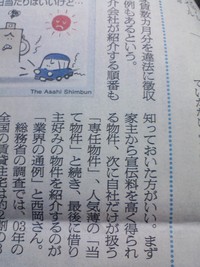 当たりはいいけど…
The Asahi Shimbun
貨数カ月分を違法に徴収
例もあるという。
介会社が紹介する順番も
知っておいた方がいい。まず
家主から宣伝料を高く得られ
る物件、次に自社だけが扱う
「専任物件」、人気薄の「当
て物件」と続き、最後に借り
主好みの物件を紹介するのが
「業界の通例」と西岡さん。
総務省の調査では、03年の
全国の賃貸住宅は約2割の3